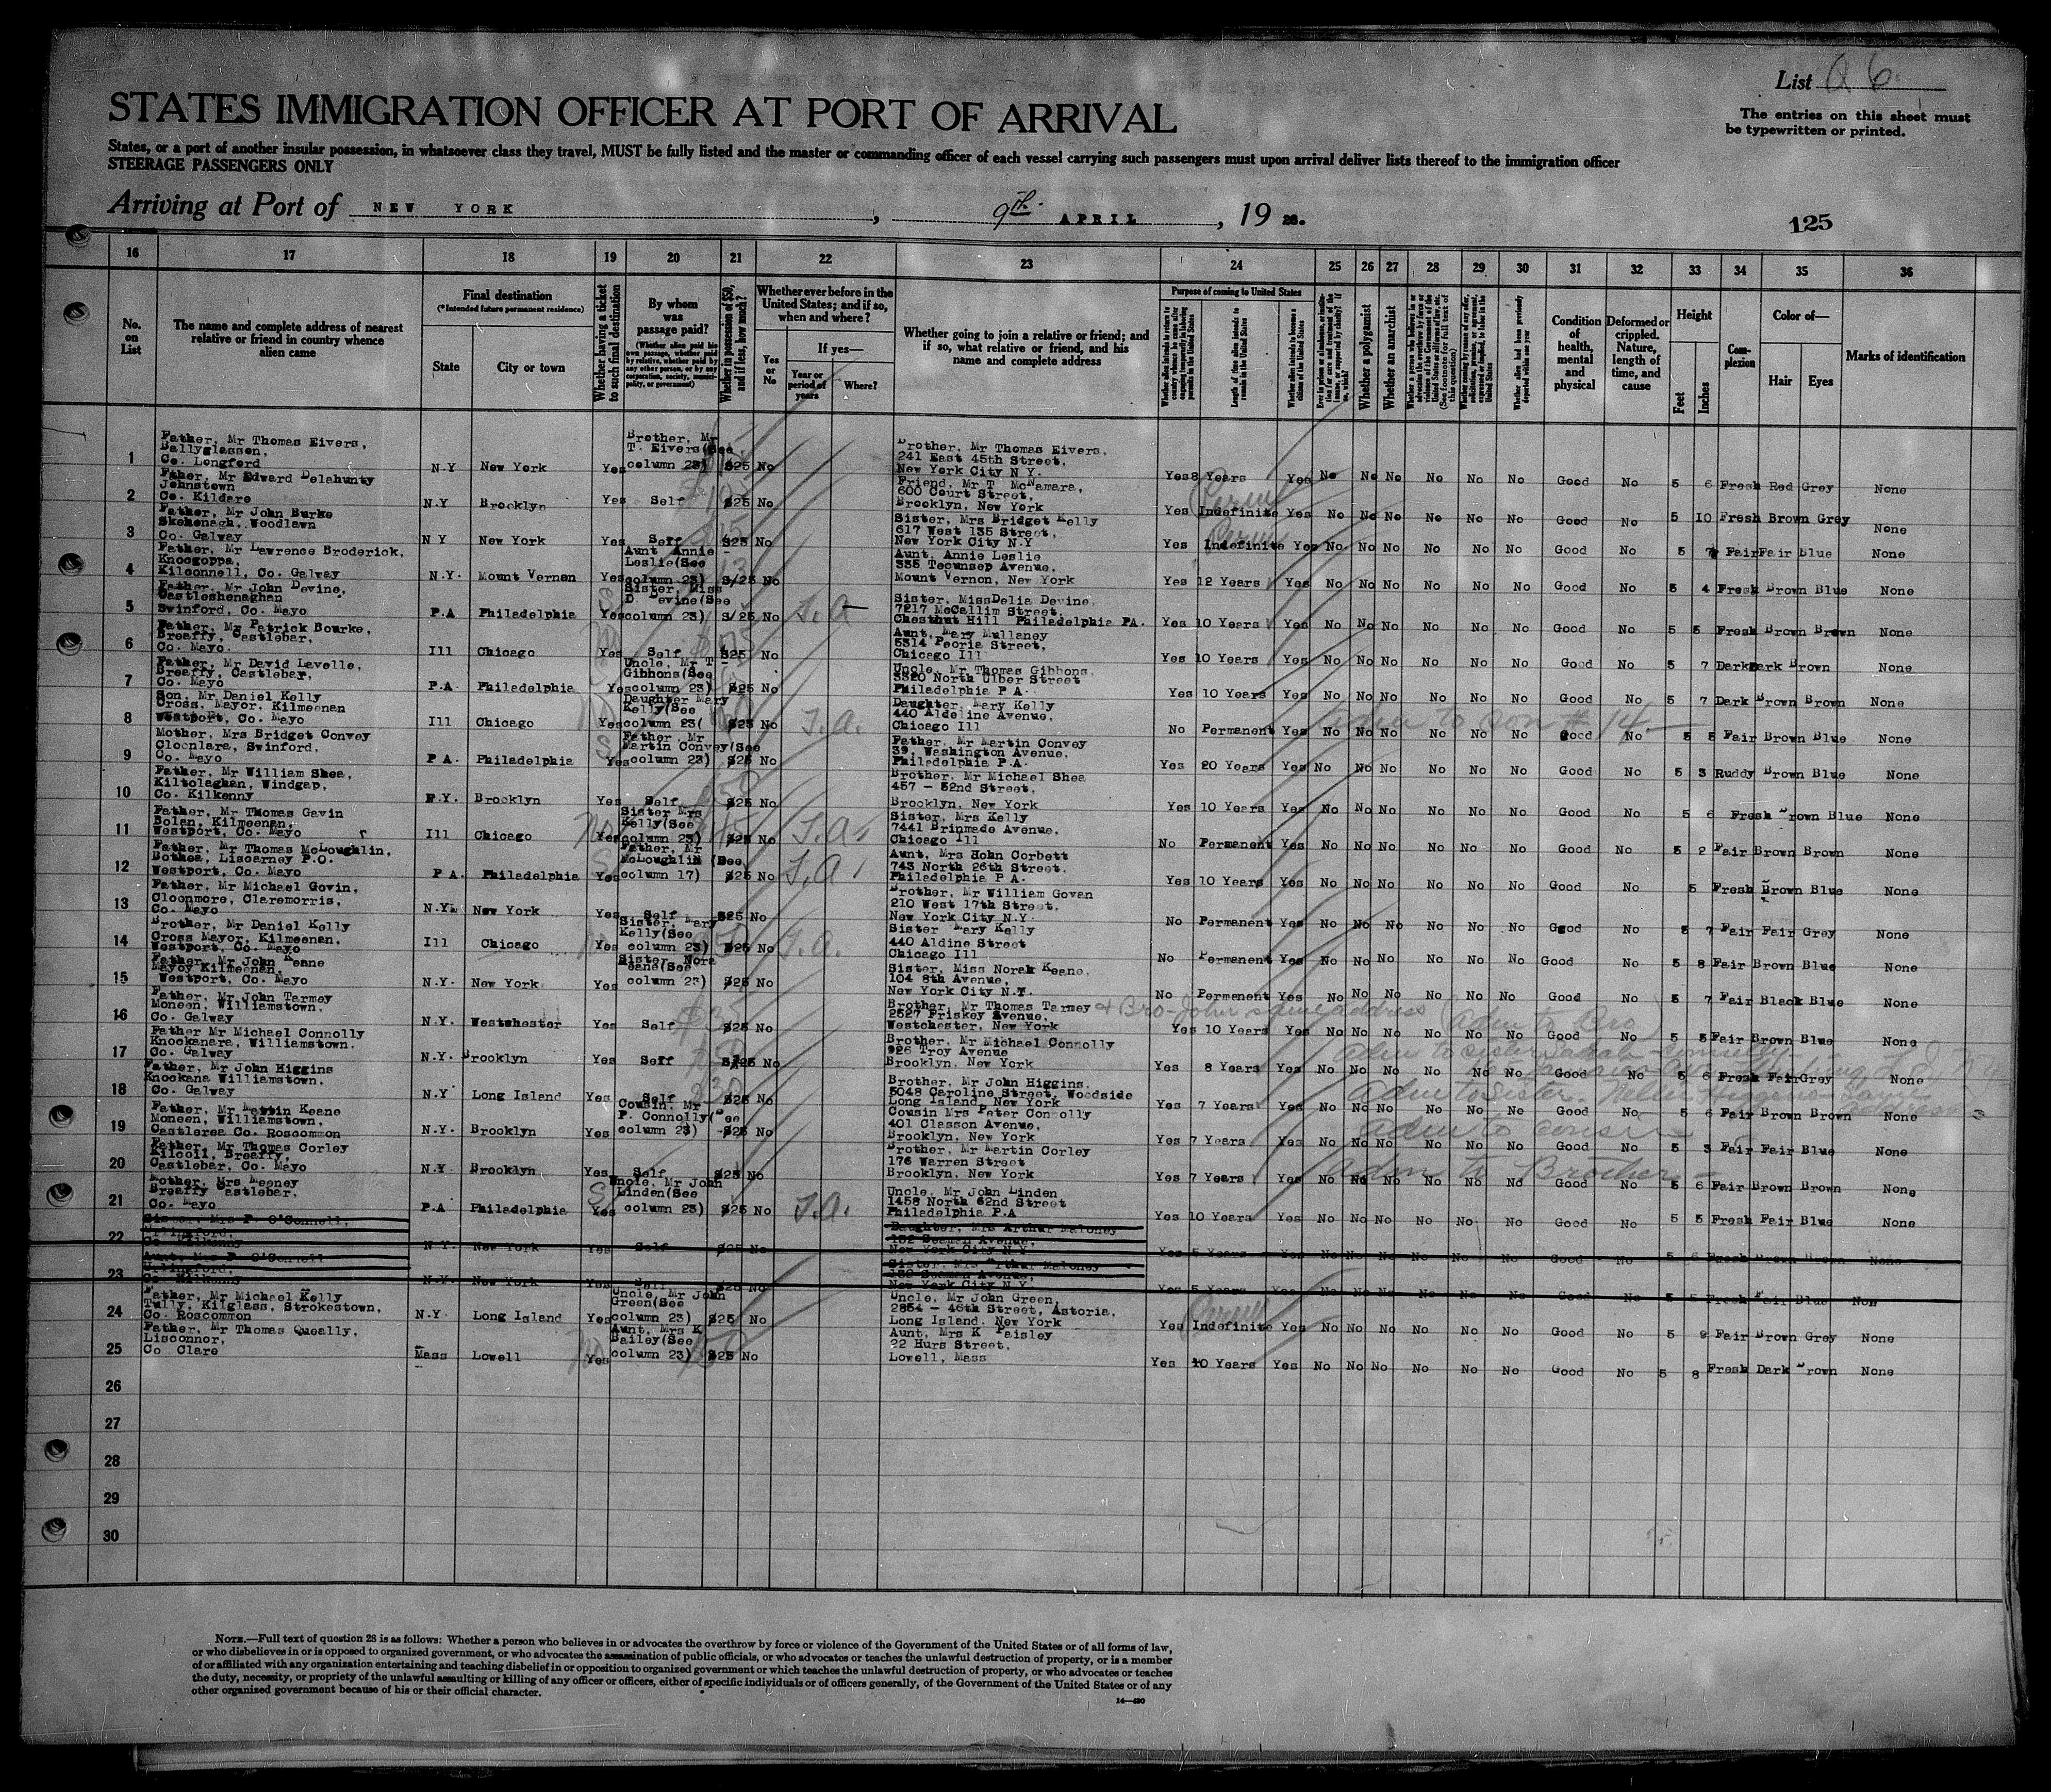 List Q 6
The entries on this sheet must
be typewritten or printed.
STATES IMMIGRATION OFFICER AT PORT OF ARRIVAL
States, or a port of another insular possession, in whatsoever class they travel, MUST be fully listed and the master or commanding officer of each vessel carrying such passengers must upon arrival deliver lists thereof to the immigration officer
STEERAGE PASSENGERS ONLY
Arriving at Port of NEW YORK, 9th. APRIL, 19 28.
125
16 17 18 19 20 21 22 23 24 25 26 27 28 29 30 31 32 33 34 35 36
No. on List
The name and complete address of nearest relative or friend in country whence alien came
Final destination
(*Intended future permanent residence)
State
City or town
Whether having a ticket to such final destination
By whom was passage paid?
(Whether alien paid his own passage, whether paid by relative, whether paid by any other person, or by any corporation, society, municipality, or government)
Whether in possession of $50, and if less, how much?
Whether ever before in the United States; and if so, when and where?
Yes or No
If yes—
Year or period of years
Where?
Whether going to join a relative or friend; and if so, what relative or friend, and his name and complete address
Purpose of coming to United States
Length of time alien intends to remain in the United States
Whether alien intends to become a citizen of the United States
Whether a polygamist
Whether an anarchist
Condition of health, mental and physical
Deformed or crippled. Nature, length of time, and cause
Height
Feet
Inches
Complexion
Color of—
Hair
Eyes
Marks of identification
1 Father, Mr Thomas Eivers, Ballyglassen, Co. Longford N.Y New York Yes Brother, Mr T. Eivers(See column 23) $25 No Brother, Mr Thomas Eivers, 241 East 45th Street, New York City N.Y. Yes 8 Years Yes No No No No No No Good No 5 6 Fresh Red Grey None
2 Father, Mr Edward Delahunty Johnstown Co. Kildare N.Y Brooklyn Yes Self $25 No Friend, Mr T McNamara, 600 Court Street, Brooklyn, New York Yes Indefinite Yes No No No No No No Good No 5 10 Fresh Brown Grey None
3 Father, Mr John Burke Skehenagh, Woodlawn Co. Galway N Y New York Yes Self $25 No Sister, Mrs Bridget Kelly 617 West 135 Street, New York City N.Y Yes Indefinite Yes No No No No No No Good No 5 7 Fair Fair Blue None
4 Father, Mr Lawrence Broderick, Knocgoppa, Kilconnell, Co. Galway N.Y. Mount Vernon Yes Aunt, Annie Leslie(See column 23) $/25 No Aunt, Annie Leslie 335 Tecumsep Avenue, Mount Vernon, New York Yes 12 Years Yes No No No No No No Good No 5 4 Fresh Brown Blue None
5 Father, Mr John Devine, Castleshenaghan Swinford, Co. Mayo P.A Philadelphia Yes Sister, Miss D Devine(See column 23) $/25 No J.A Sister, MissDelia Devine, 7217 McCallim Street, Chesthut Hill Philadelphia PA. Yes 10 Years Yes No No No No No No Good No 5 5 Fresh Brown Brown None
6 Father, Mr Patrick Bourke, Breaffy, Castlebar, Co. Mayo. Ill Chicago Yes Self $25 No Aunt, Mary Mullaney 5314 Peoria Street, Chicago Ill Yes 10 Years Yes No No No No No No Good No 5 7 Dark Dark Brown None
7 Father, Mr David Lavelle, Breaffy, Castlebar, Co. Mayo P.A Philadelphia Yes Uncle, Mr T Gibbons(See column 23) $25 No Uncle, Mr Thomas Gibbons, 3320 North Ulber Street Philadelphia P A. Yes 10 Years Yes No No No No No No Good No 5 7 Dark Brown Brown None
8 Son, Mr Daniel Kelly Cross, Mayor, Kilmeenan Westport, Co. Mayo Ill Chicago Yes Daughter Mary Kelly(See column 23( $25 No J.A. Daughter, Mary Kelly 440 Aldeline Avenue, Chicago Ill No Permanent Yes adm to son # 14 No No No No No No Good No 5 5 Fair Brown Blue None
9 Mother, Mrs Bridget Convey Cloonlara, Swinford, Co. Mayo P A. Philadelphia Yes Father, Mr Martin Convey(See column 23) $25 No Father, Mr Martin Convey 39, Washington Avenue, Philadelphia P.A. Yes 20 Years Yes No No No No No No Good No 5 3 Ruddy Brown Blue None
10 Father, Mr William Shea, Kiltolaghan, Windgap, Co. Kilkenny N.Y. Brooklyn Yes Self $25 No Brother, Mr Michael Shea 457 - 52nd Street, Brooklyn, New York Yes 10 Years Yes No No No No No No Good No 5 6 Fresh Brown Blue None
11 Father, Mr Thomas Gavin Bolan, Kilmeenan, Westport, Co. Mayo Ill Chicago Yes Sister Mrs Kelly(See column 23) $25 No J.A. Sister, Mrs Kelly 7441 Brinmade Avenue, Chicago Ill No Permanent Yes No No No No No No Good No 5 2 Fair Brown Brown None
12 Father, Mr Thomas McLoughlin, Bothea, Liscarney P.O. Westport, Co. Mayo P A. Philadelphia Yes Father, Mr McLoughlin (See column 17) $25 No J.A. Aunt, Mrs Hohn Corbett 743 North 26th Street, Philadelphia P A. Yes 10 Years Yes No No No No No No Good No 5 Fresh Brown Blue None
13 Father, Mr Michael Govin, Cloonmore, Claremorris, Co. Mayo N.Y. New York Yes Self $25 No Brother, Mr William Govan 210 West 17th Street, New York City N.Y. No Permanent Yes No No No No No No Good No 5 7 Fair Fair Grey None
14 Brother, Mr Daniel Kelly Cross Mayor, Kilmeenan, Westport, Co. Mayo Ill Chicago Yes Sister, Mary Kelly(See column 23) $25 No J.A. Sister Mary Kelly 440 Aldine Street Chicago Ill No Permanent Yes No No No No No No Good No 5 8 Fair Brown Blue None
15 Father, Mr John Keane Mayoy Kilmeenan, Westport, Co. Mayo N.Y. New York Yes Sister, Nora Keane(See column 23) $25 No Sister, Miss Norah Keane, 104 8th Avenue, New York City N.Y. No Permanent Yes No No No No No No Good No 5 7 Fair Black Blue None
16 Father, Mr John Tarmey Moneen, Williamstown, Co. Galway N.Y. Westchester Yes Self $25 No Brother, Mr Thomas Tarmey & Bro-John same address 2527 Friskey Avenue, Westchester, New York Yes 10 Years Yes (adm to Bro) No No No No No No Good No 5 5 Fair Brown Blue None
17 Father Mr Michael Connolly Knockanara, Williamstown. Co. Galway N.Y. Brooklyn Yes Self $25 No Brother, Mr Michael Connolly 926 Troy Avenue Brooklyn, New York Yes 8 Years Yes adm to sister No No No No No No Good No 5 6 Fresh Fair Grey None
18 Father, Mr John Higgins Knockana Williamstown, Co. Galway N.Y Long Island Yes Self $25 No Brother, Mr John Higgins, 5048 Caroline Street, Woodside Long Island, New York Yes 7 Years Yes adm to Sister - Nellie Higgins - same address No No No No No No Good No 5 6 Fair Brown Brown None
19 Father, Mr Martin Keane Moneen, Williamstown, Castlerea Co. Roscommon N.Y. Brooklyn Yes Cousin, Mr P. Connolly(See column 23) $25 No Cousin Mrs Pater Connolly 401 Classon Avenue, Brooklyn, New York Yes 7 Years Yes adm to cousin No No No No No No Good No 5 3 Fair Fair Blue None
20 Father, Mr Thomas Corley Kilcoll, Breaffy, Castlebar, Co. Mayo N.Y Brooklyn Yes Self $25 No Brother, Mr Martin Corley 176 Warren Street Brooklyn, New York Yes 7 Years Yes adm to Brother - No No No No No No Good No 5 6 Fair Brown Brown None
21 Mother, Mrs Meeney Breaffy Castlebar, Co. Mayo P.A Philadelphia Yes Uncle, Mr John Linden(See column 23) $25 No J.A. Uncle, Mr John Linden 1458 North 62nd Street Philadelphia P.A Yes 10 Years Yes No No No No No No Good No 5 5 Fresh Fair Blue None
22 Sister, Mrs P. O'Connell, Urlingford, Co Kilkenny N Y. New York Yes Self $25 No Daughter, Mrs Arthur Maloney 132 Seaman Avenue, New York City N.Y. Yes 5 Years Yes No No No No No No Good No 5 6 Fresh Brown Brown None
23 Aunt, Mrs P O'Connell Urlingford, Co Kilkenny N.Y. New York Yes Self $25 No Sister, Mrs Arthur Maloney 132 Seaman Avenue, New York City N.Y Yes 5 Years Yes No No No No No No Good No 5 5 Fresh Fair Blue Non
24 Father, Mr Michael Kelly Tully, Kilglass, Strokestown, Co. Roscommon N.Y Long Island Yes Uncle, Mr John Green(See column 23) $25 No Uncle, Mr John Green, 2854 - 46th Street, Astoria, Long Island, New York Yes Indefinite Yes No No No No No No Good No 5 9 Fair Brown Grey None
25 Father, Mr Thomas Queally, Lisconnor, Co Clare Mass Lowell Yes Aunt, Mrs K Bailey(See column 23) $25 No Aunt, Mrs K Paisley 22 Hurs Street, Lowell, Mass Yes 10 Years Yes No No No No No No Good No 5 8 Fresh Dark Brown None
26
27
28
29
30
NOTE.—Full text of question 28 is as follows: Whether a person who believes in or advocates the overthrow by force or violence of the Government of the United States or of all forms of law,
or who disbelieves in or is opposed to organized government, or who advocates the assassination of public officials, or who advocates or teaches the unlawful destruction of property, or is a member
of or affiliated with any organization entertaining and teaching disbelief in or opposition to organized government or which teaches the unlawful destruction of property, or who advocates or teaches
the duty, necessity, or propriety of the unlawful assaulting or killing of any officer or officers, either of specific individuals or of officers generally, of the Government of the United States or of any
other organized government because of his or their official character.
14—480